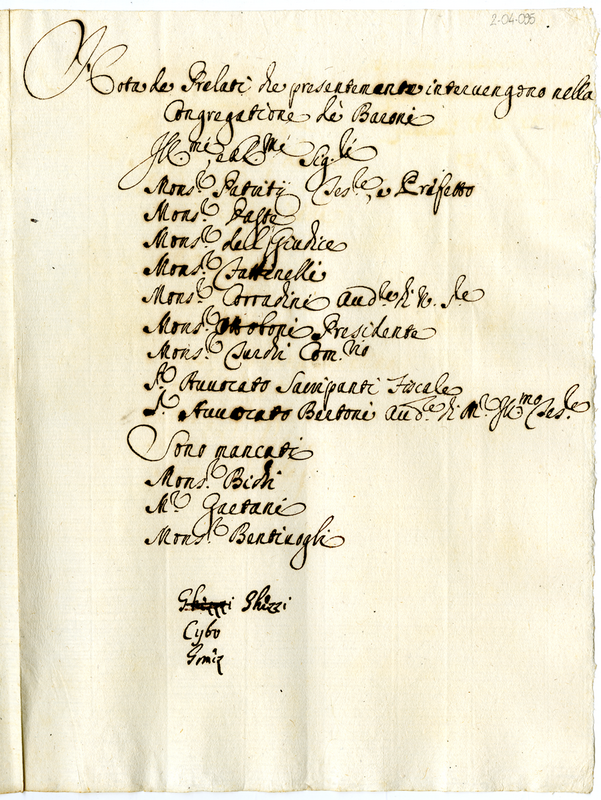 2-04-095
Nota de Prelati che presentemente interuengono nella
Congregatione de Baroni
Ill.mi, e R.mi Sig.ri
Mons.r Patritij Tes.re, e Prefetto
Mons.r
Mons.r dell Giudice
Mons.r
Mons.r Corradini Aud.re di N. S.re
Mons.r Ottoboni Presidente
Mons.r Com.rio
S.r Auuocato Sampanti Fiscale
S.r Auuocato Bartoni Aud.re di M.r Ill.mo Tes.re
Sono mancati
Mons.r Bichi
M.r Gaetani
Mons.r Bentiuogli
Ghizzi
Cybo
Gomez